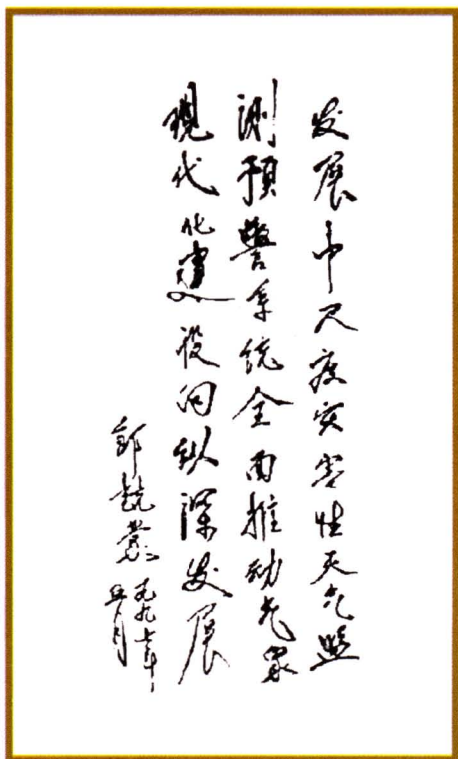 发展中尺度灾害性天气监
测预警系统全面推动气象
现代化建设向纵深发展
邹竞蒙
一九九七年
五月